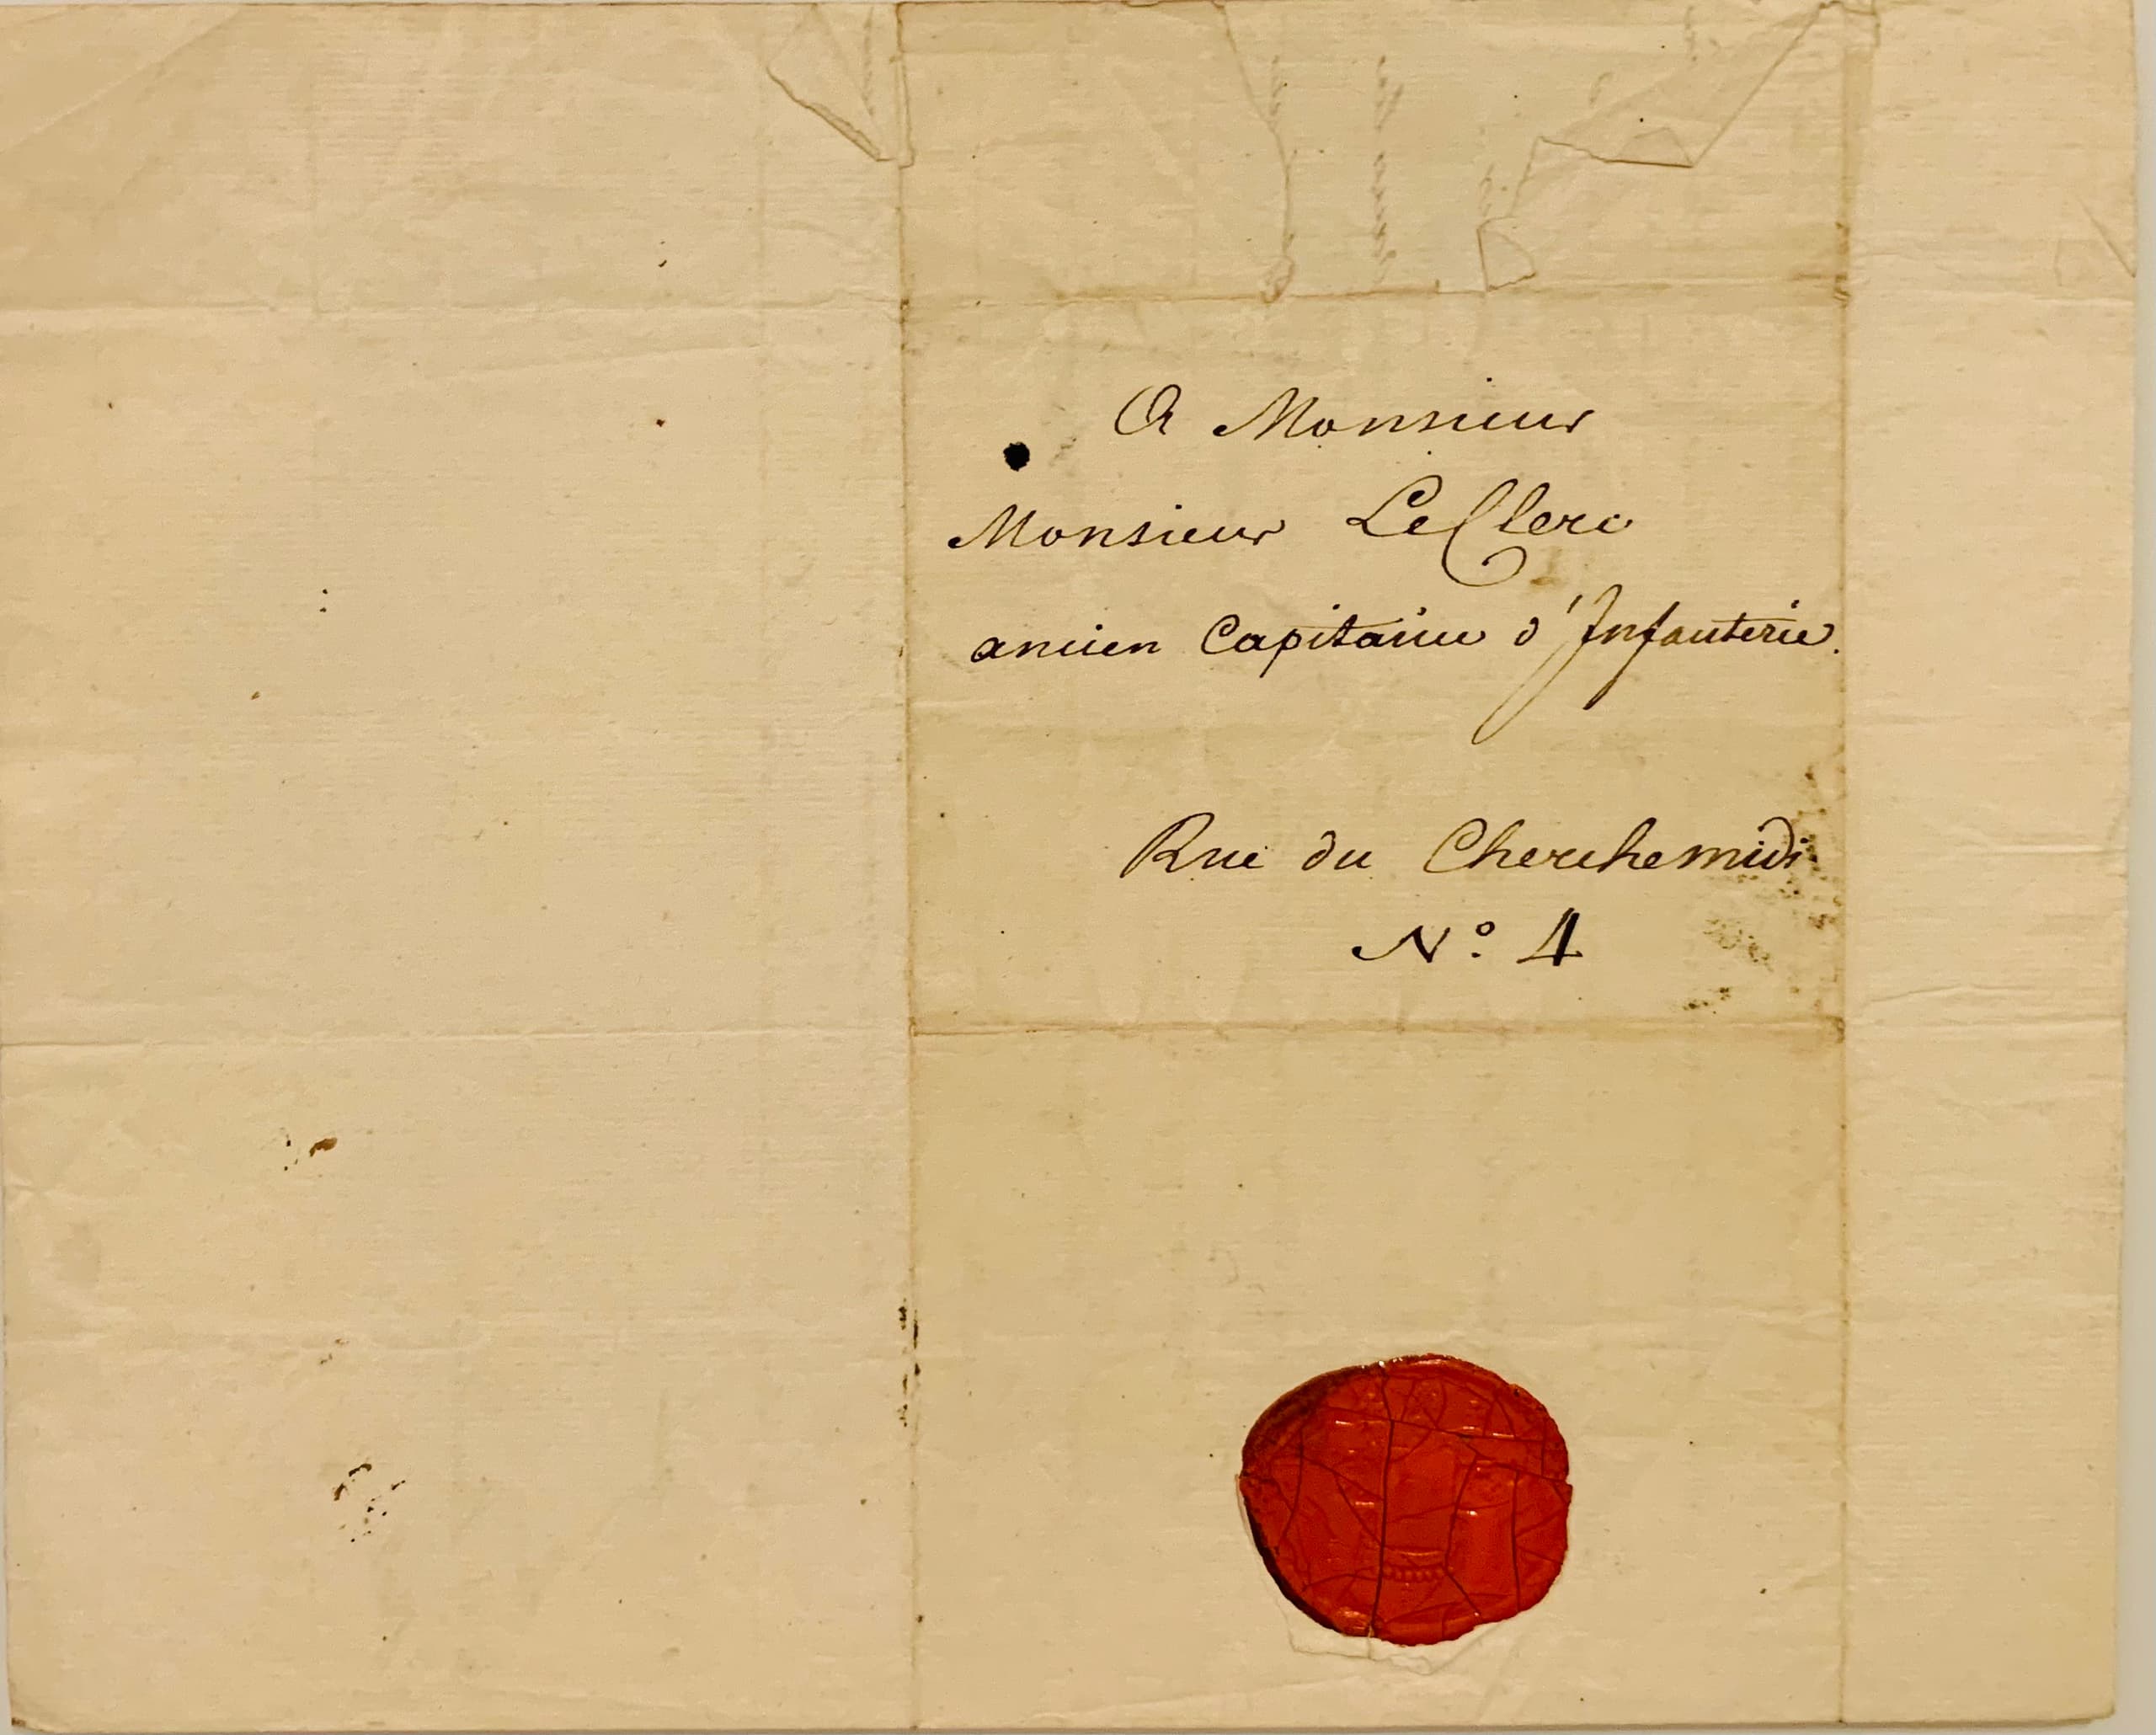 A Monsieur
Monsieur LeClerc
ancien Capitaine d'Infanterie.
Rue du Cherchemidi
N° 4